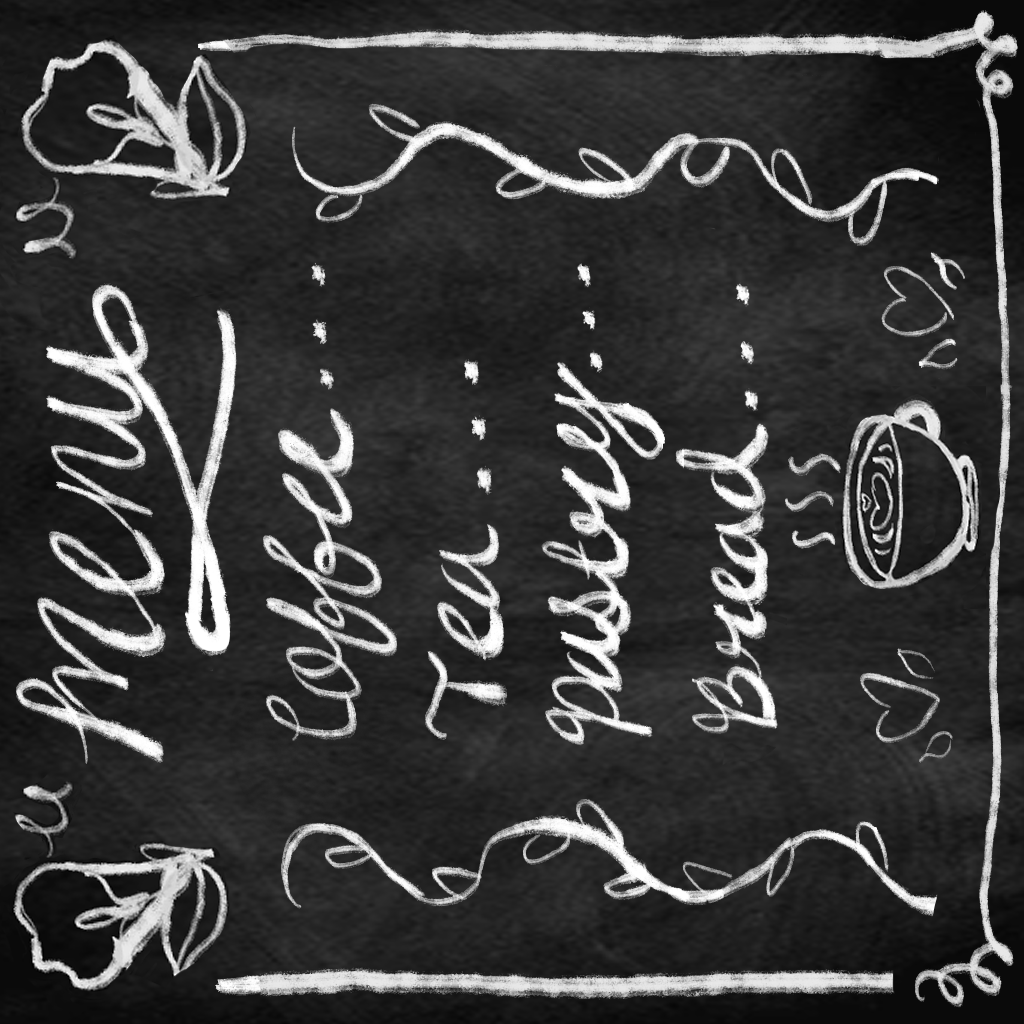 Menu
Coffee...
Tea...
pastrey...
Bread...